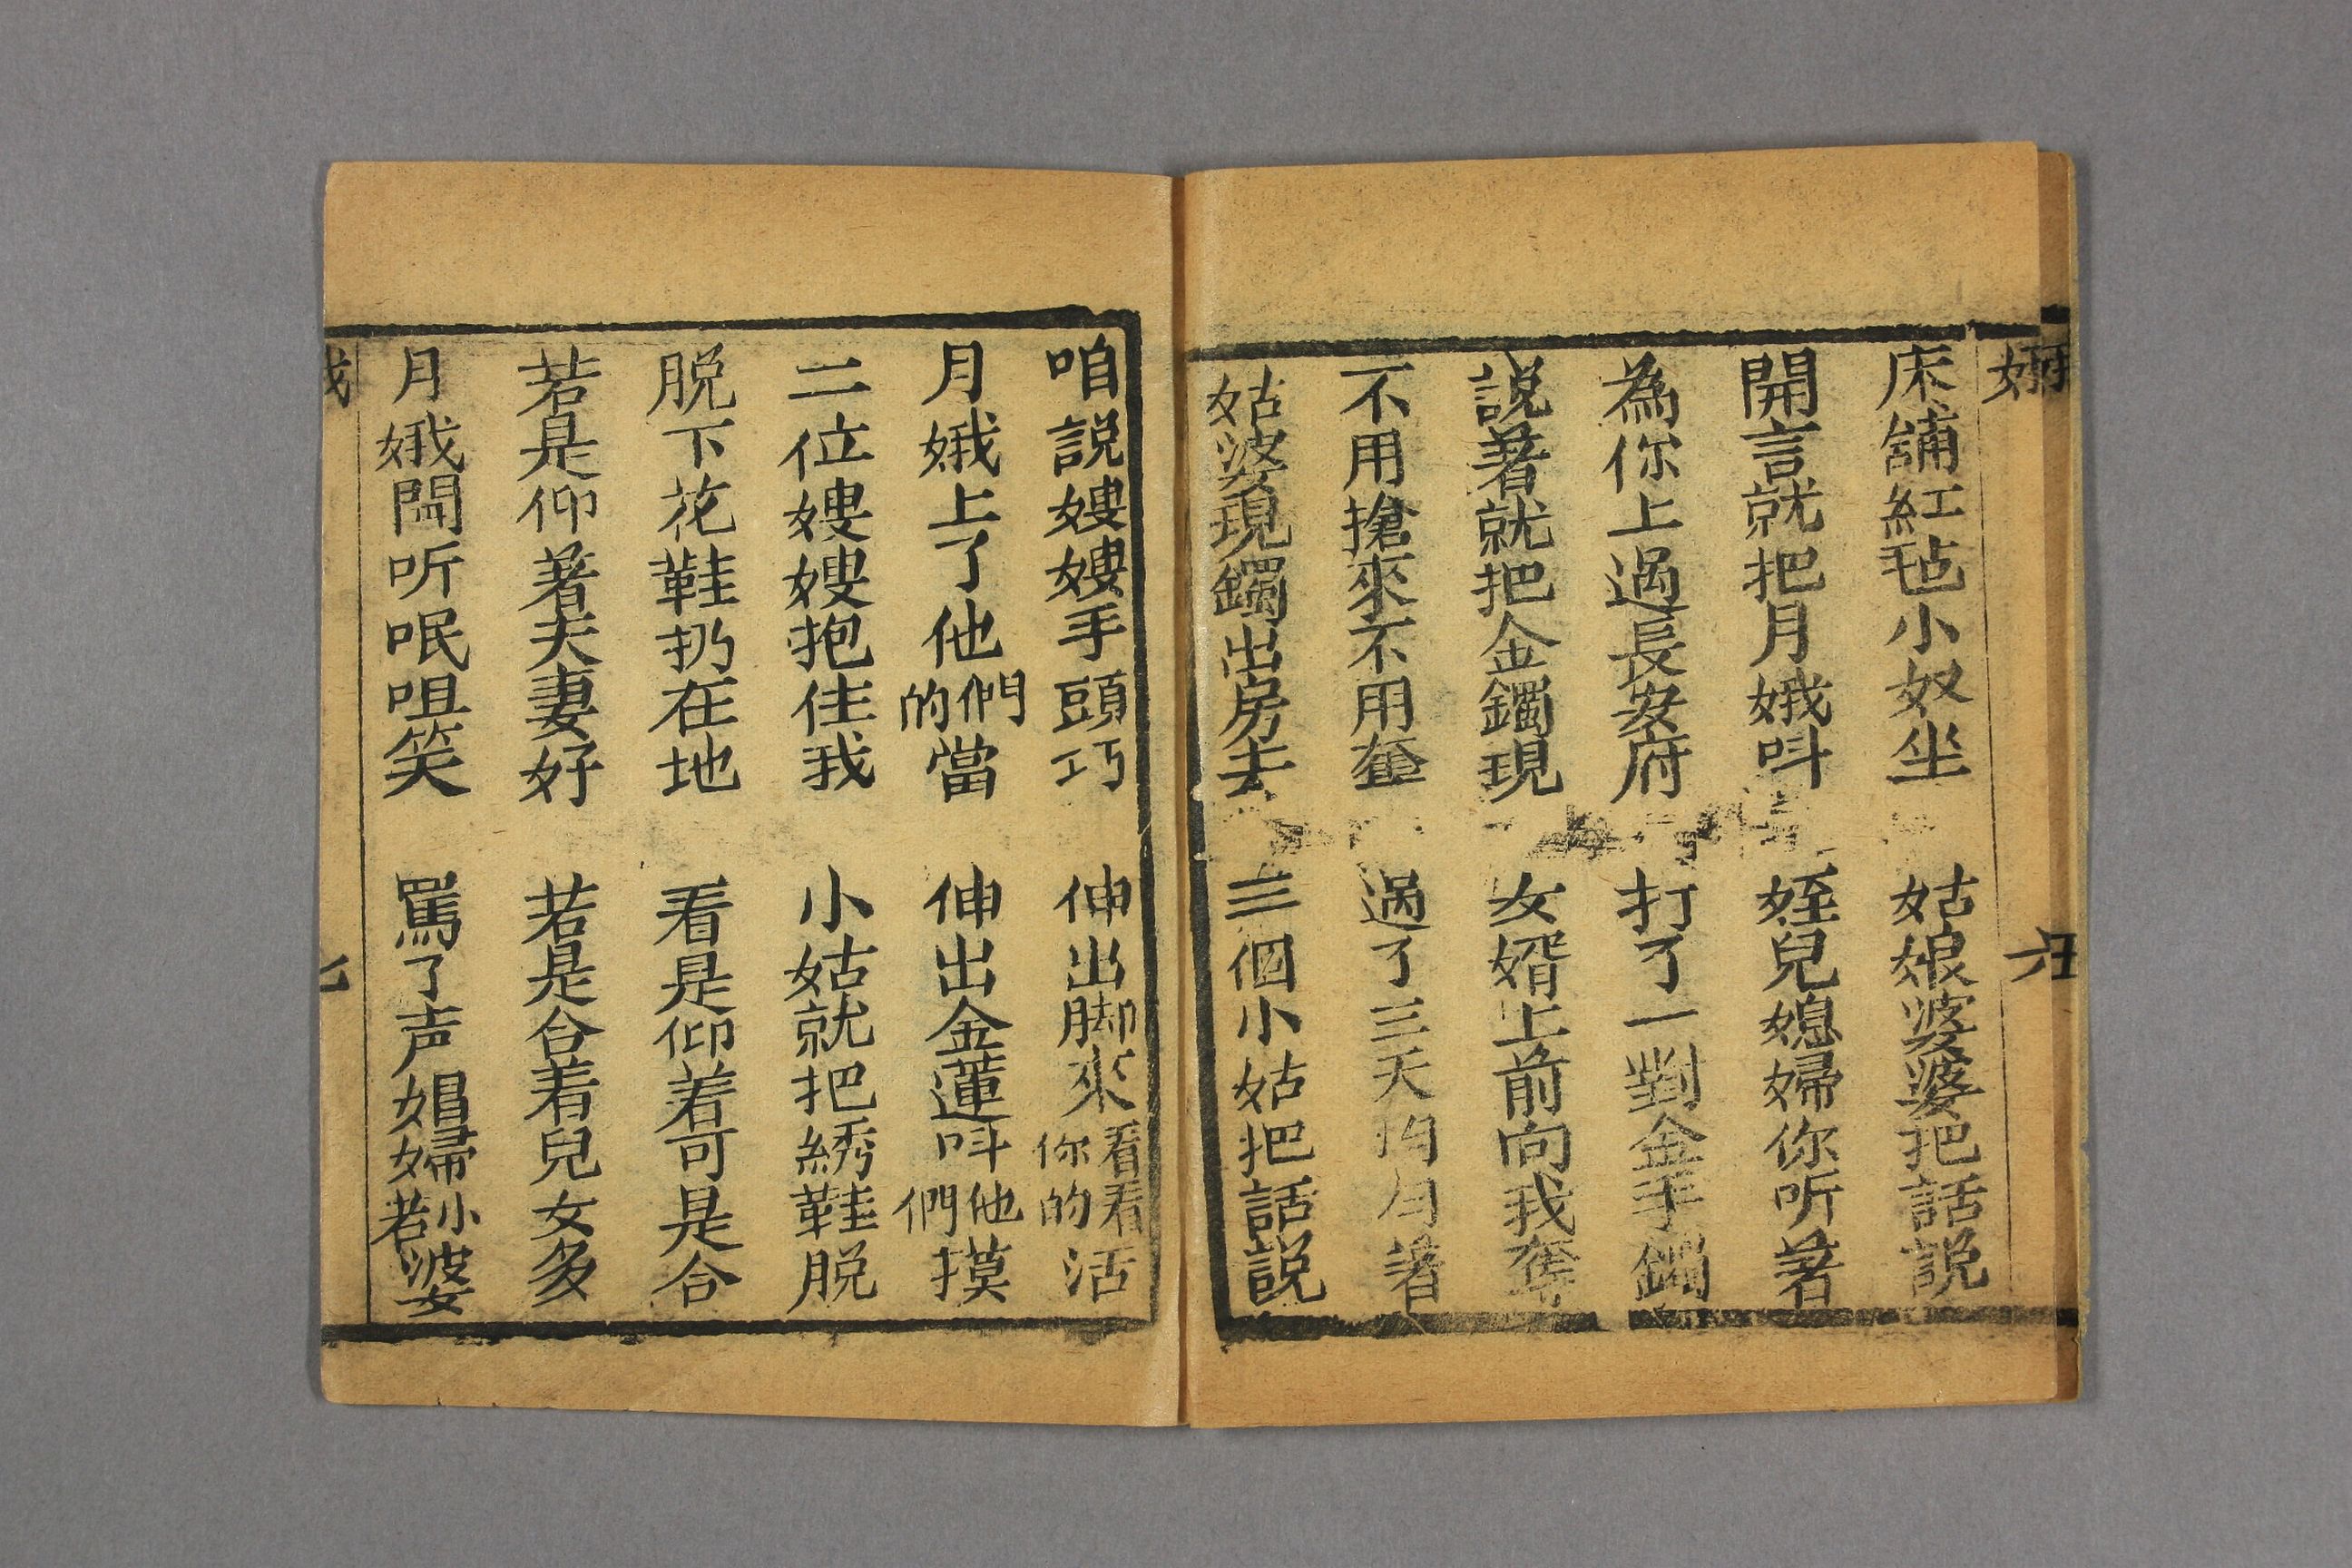 床舖紅毡小奴坐 姑娘婆婆把話説
開言就把月娥呌 姪兒媳婦你听著
為你上過長安府 打了一對金手鐲
説著就把金鐲現 女婿上前向我奪
不用搶來不用奪 過了三天著
姑婆現鐲出房去 三個小姑把話説
咱説嫂嫂手頭巧 伸出脚來看看你的活
月娥上了他們的當 伸出金蓮呌他們摸
二位嫂嫂抱住我 小姑就把綉鞋脱
脱下花鞋扔在地 看是仰着可是合
若是仰著夫妻好 若是合着兒女多
月娥聞听呡咀笑 罵了声娼婦小若婆